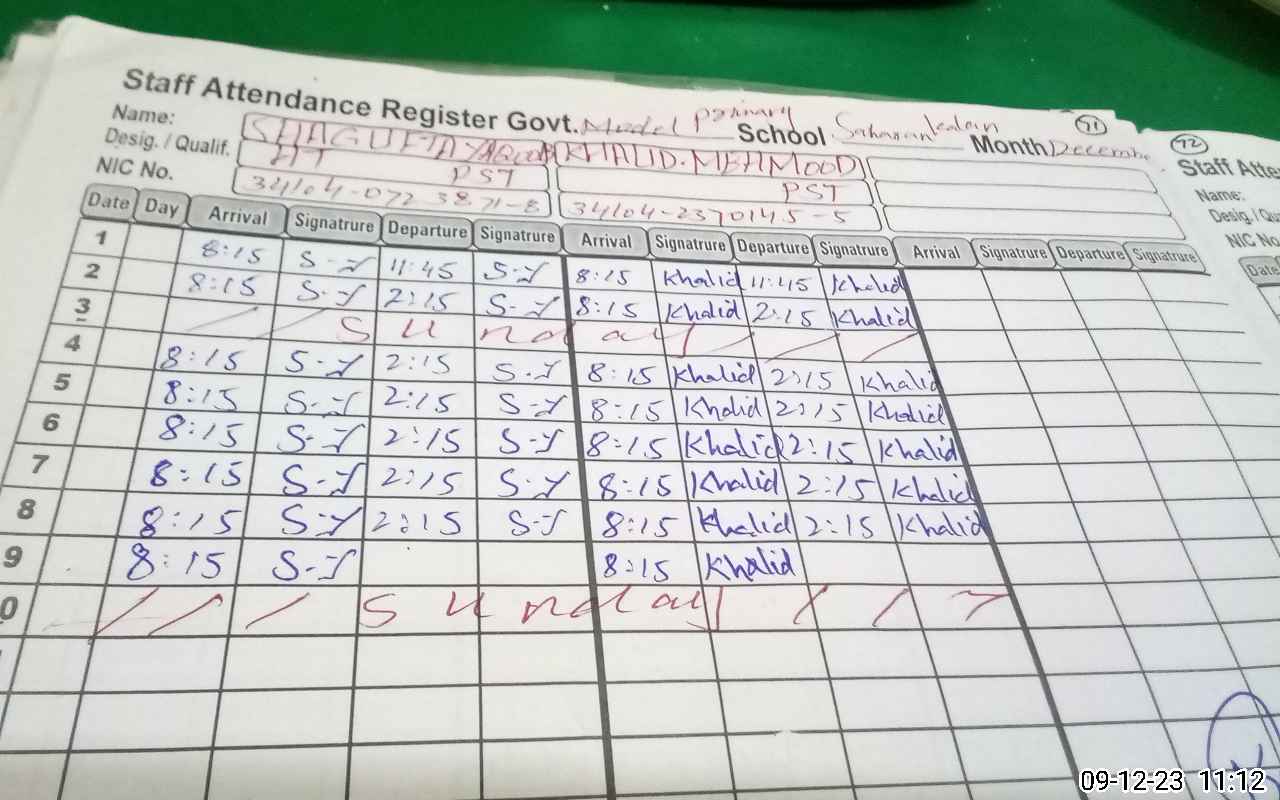 Staff Attendance Register Govt. Model Primary School Saharan kalan Month December 71
Name: SHAGUFTA YAQOOB KHALID.MEHMOOD
Desig. / Qualif. HT PST PST
NIC No. 34104-072 3871-8 34104-2370145-5
Date Day Arrival Signatrure Departure Signatrure Arrival Signatrure Departure Signatrure Arrival Signatrure Departure Signatrure
1 8:15 S-Y 11:45 S-Y 8:15 Khalid 11:45 Khalid
2 8:15 S-Y 2:15 S-Y 8:15 Khalid 2:15 Khalid
3 Sunday
4 8:15 S-Y 2:15 S-Y 8:15 Khalid 2:15 Khalid
5 8:15 S-Y 2:15 S-Y 8:15 Khalid 2:15 Khalid
6 8:15 S-Y 2:15 S-Y 8:15 Khalid 2:15 Khalid
7 8:15 S-Y 2:15 S-Y 8:15 Khalid 2:15 Khalid
8 8:15 S-Y 2:15 S-Y 8:15 Khalid 2:15 Khalid
9 8:15 S-Y 8:15 Khalid
0 Sunday
72
Staff Atte
Name:
Desig./Qu
NIC No
Date
09-12-23 11:12